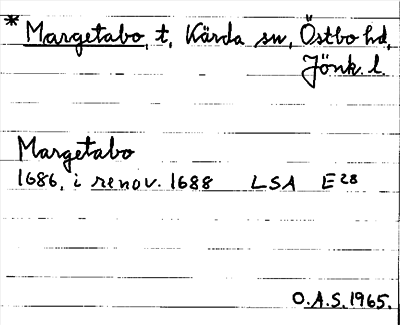 * Margetabo, t, Kärda sn, Östbo hd,
Jönk. l.
Margetabo
1686, i renov. 1688 LSA E 28
O.A.S. 1965.